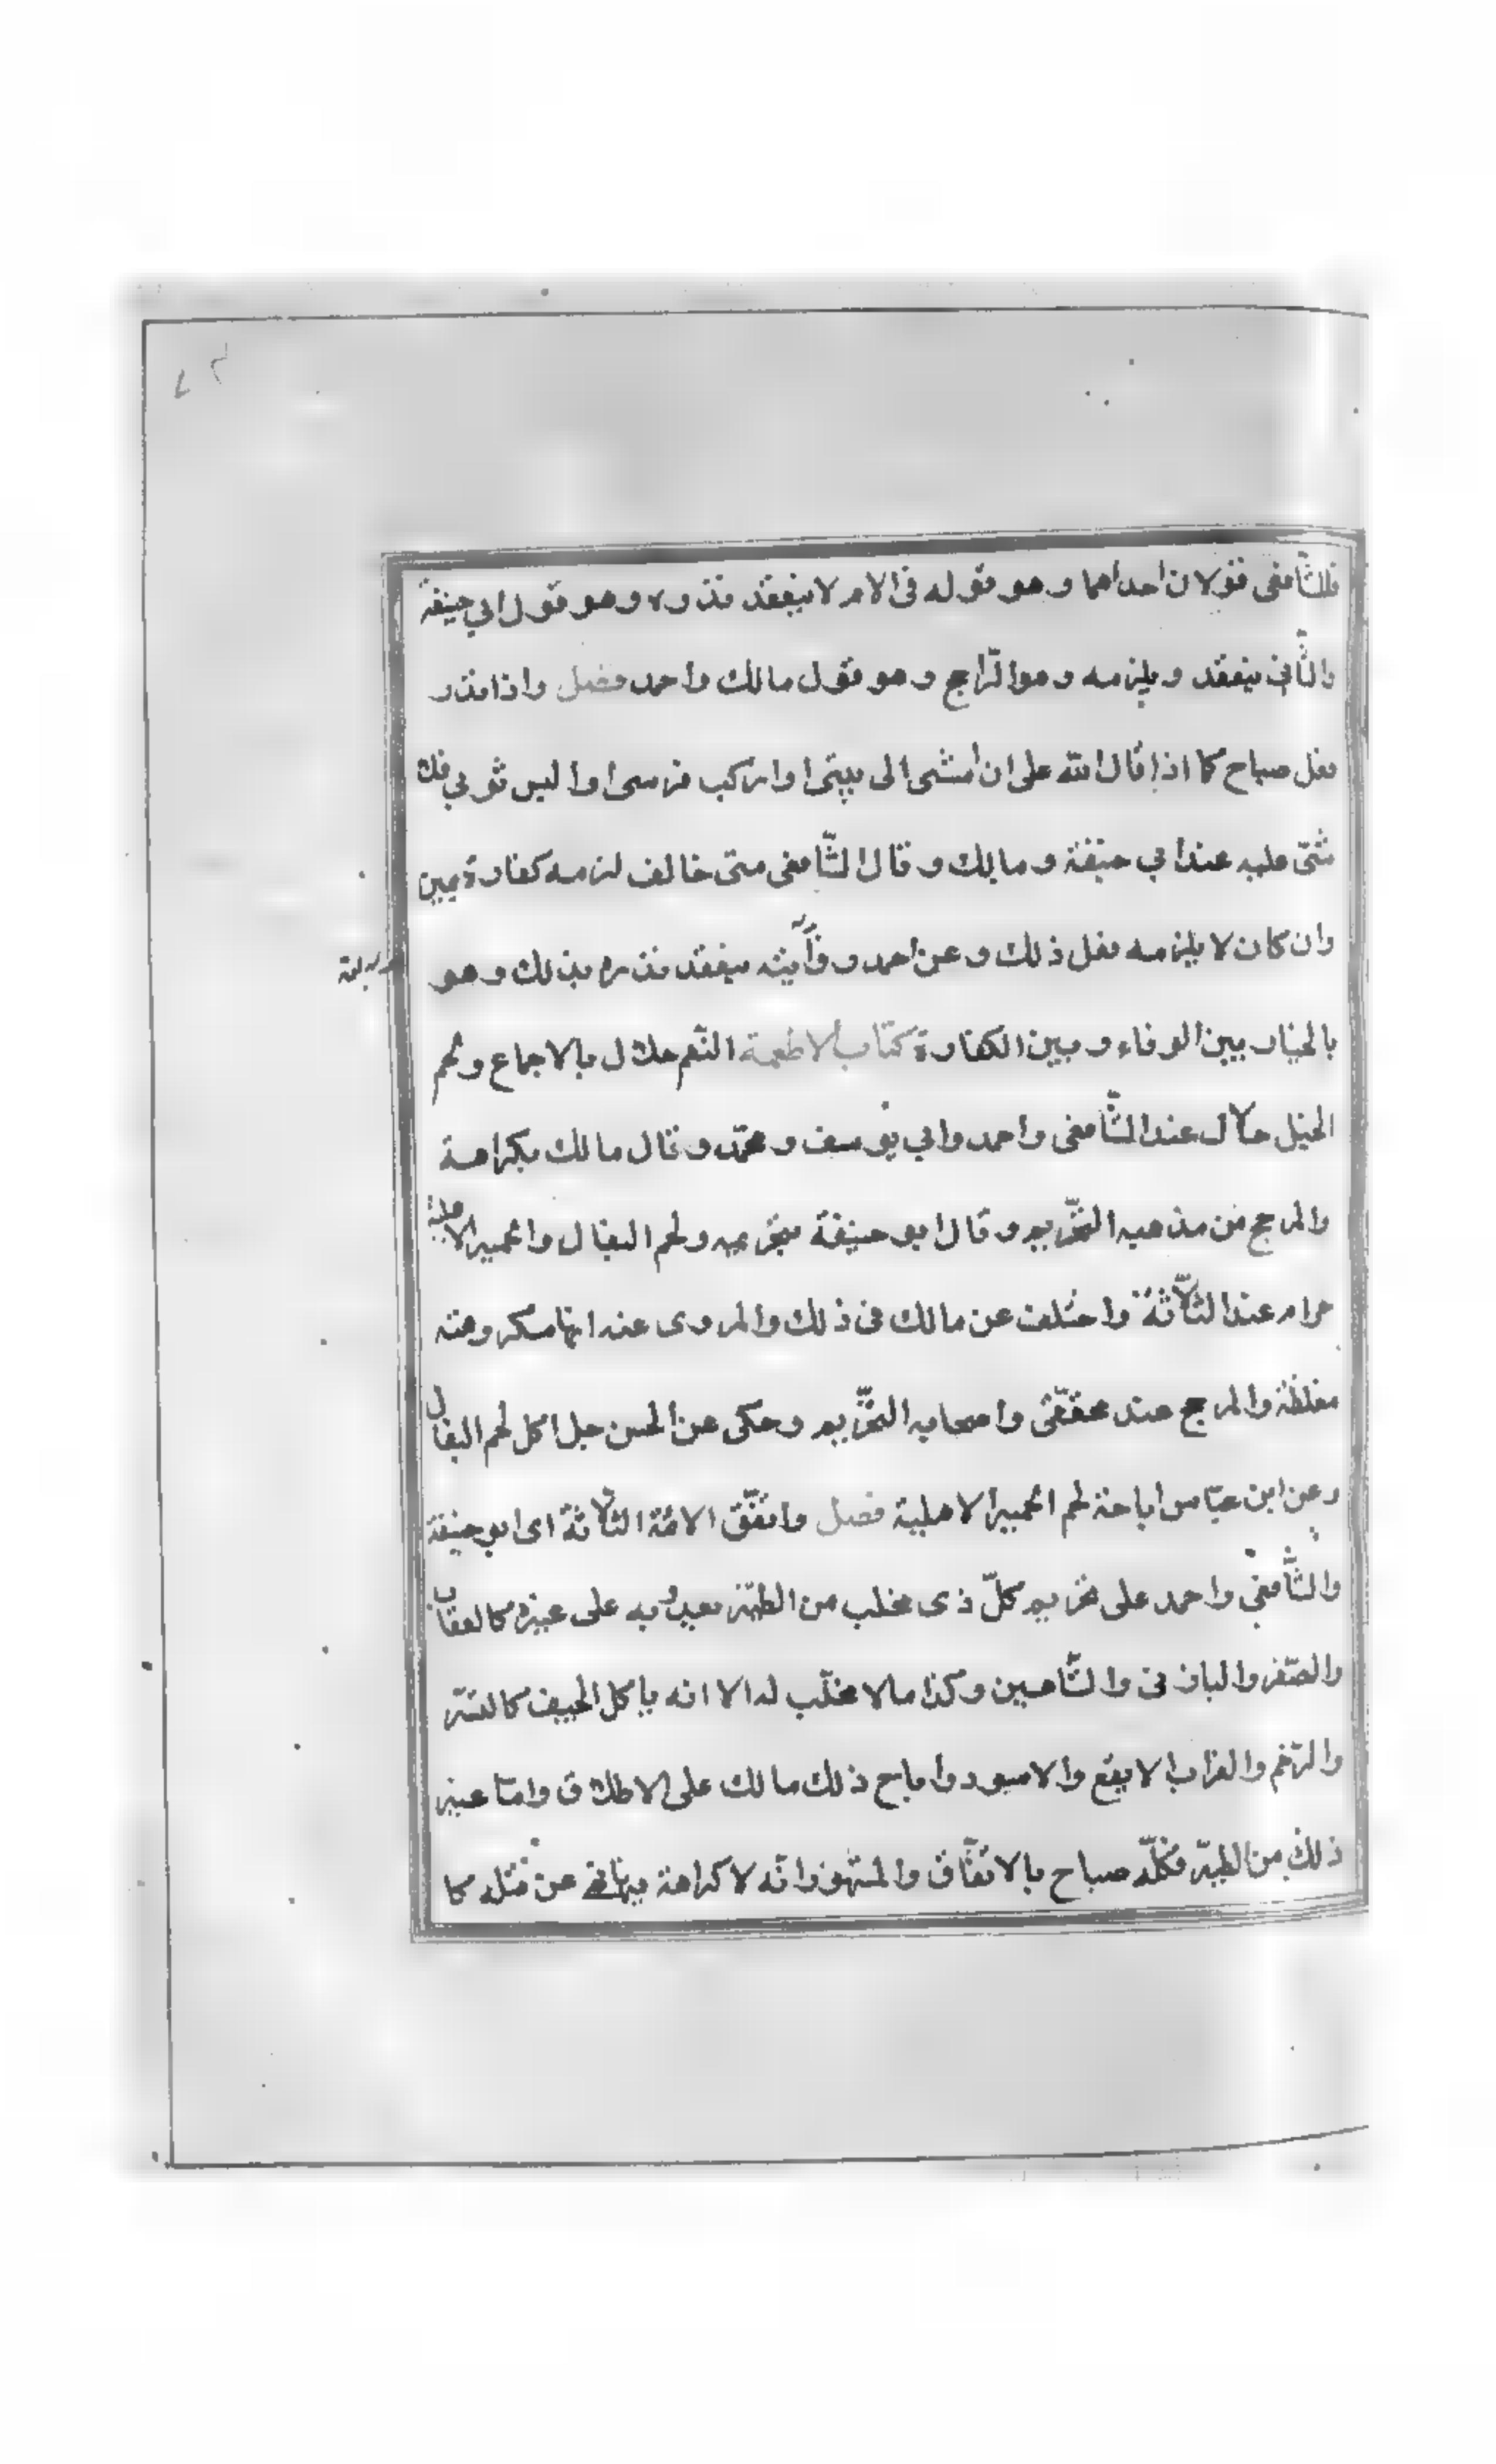 فللشّافعى قولان احداهما وهو قوله فى الام لا ينعقد نذره وهو قول ابي حنيفة
والثّانى ينعقد ويلزمه وهو الرّاجح وهو قول مالك واحمد فصل واذا نذر
فعل صباح كما اذا قال لله على ان امشى الى بيتى او اركب فرسى او البس ثوبي فلا
شئ عليه عند ابي حنيفة ومالك وقال الشّافعى متى خالف لزمه كفارة يمين
وان كان لا يلزمه فعل ذلك وعن احمد ينعقد نذره بذلك وهو
بالخيار بين الوفاء وبين الكفارة كتاب الاطعمة النّعم حلال بالاجماع ولحم
الخيل حلال عند الشّافعى واحمد وابي يوسف ومحمّد وقال مالك بكراهة
والمرجح من مذهبه التّحريم وقال ابو حنيفة بتحريمه ولحم البغال والحمير الاهلية
حرام عند الثّلاثة واختلف عن مالك فى ذلك والمروى عنه انها مكروهة
مغلظة والمرجح عند محققى واصحابه التّحريم وحكى عن الحسن حل اكل لحم البغال
وعن ابن عبّاس اباحة لحم الحمير الاهلية فصل واتفّق الائمّة الثّلاثة اى ابو حنيفة
والشّافعى واحمد على تحريم كلّ ذى مخلب من الطّير يعدو به على غيره كالعقاب
والصّقر والبازى والشّاهين وكذا ما لا مخلب له الا انه ياكل الجيف كالنسّر
والرّخم والغراب الابقع والاسود واباح ذلك مالك على الاطلاق وامّا غير
ذلك من الطّير فكلّه صباح بالاتفّاق والمشهور انّه لا كراهة فيما نهى عن قتله كا